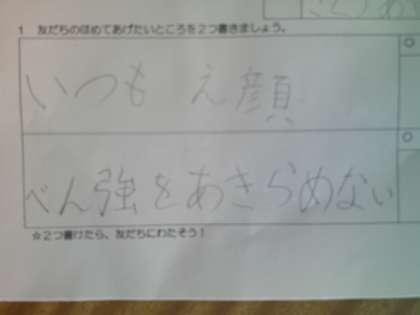 1 友だちのほめてあげたいところを2つ書きましょう。
いつも え顔
べん強をあきらめない
☆2つ書けたら、友だちにわたそう!